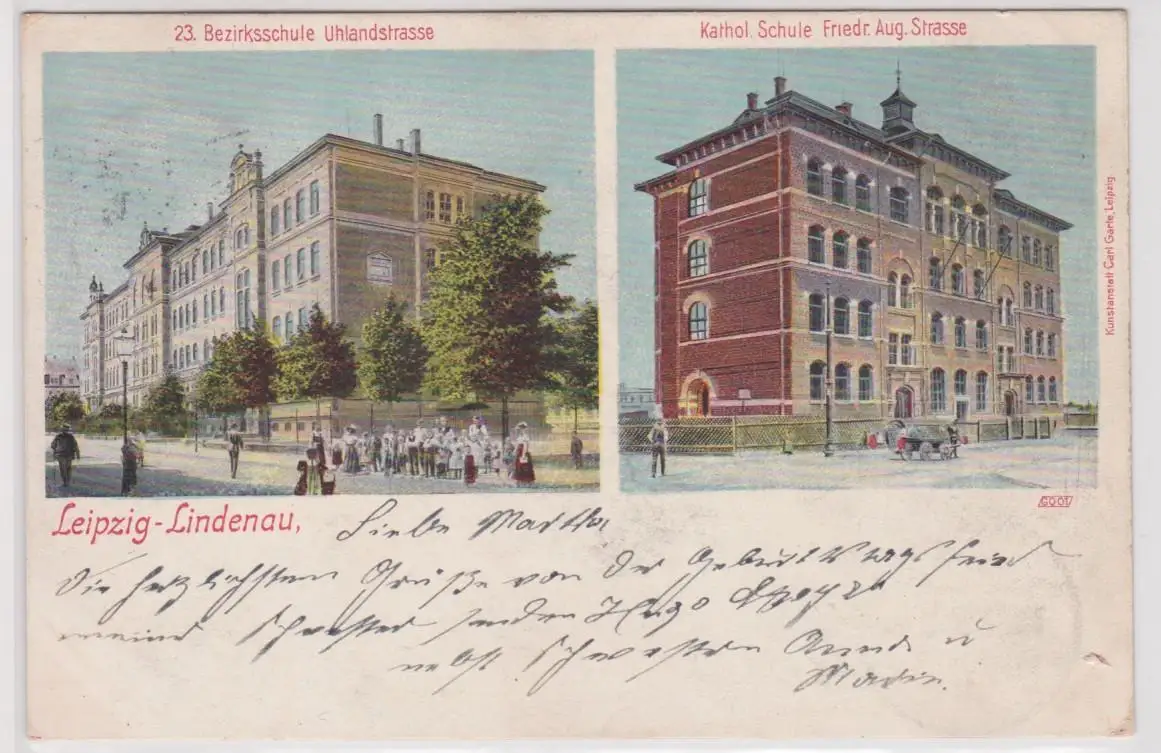 23. Bezirksschule Uhlandstrasse
Kathol. Schule Friedr. Aug. Strasse
Kunstanstalt Carl Garte, Leipzig.
GOOT
Leipzig-Lindenau,
Liebe Martha
Die herzlichsten Grüße von der Geburtstagsfeier
meiner Schwester senden Hugo
nebst Schwestern Anna u
Marie.